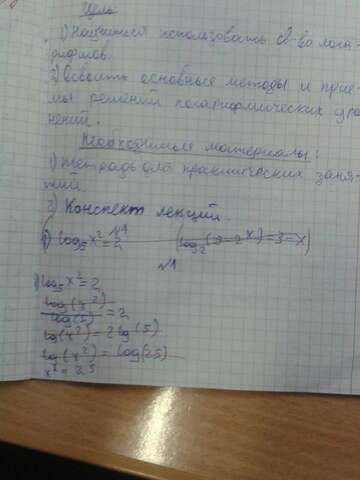 Цель
1) Научиться использовать св-ва лога-
рифмов.
2) Освоить основные методы и прие-
мы решений логарифмических урав
нений.
Необходимые материалы:
1) Тетрадь для практических заня-
тий.
2) Конспект лекций.
№1
log₅x²=2 log₂(9-2ˣ)=3-x
№1
1) log₅x²=2
log(x²)/log(5)=2
lg(x²)=2lg(5)
lg(x²)=log(25)
x²=25